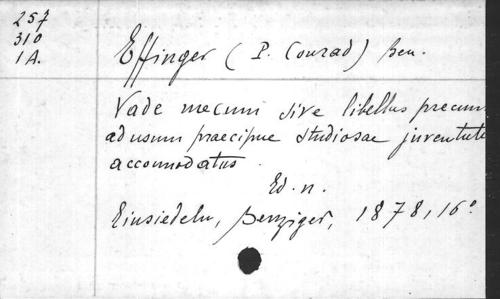 257
310
1A.
Effinger (P. Conrad) Ben.
Vade mecum sive libellus precum
ad usum praecipue studiosae juventute
accomodatus.
Ed. n.
Einsiedeln, Benziger, 1878, 16°